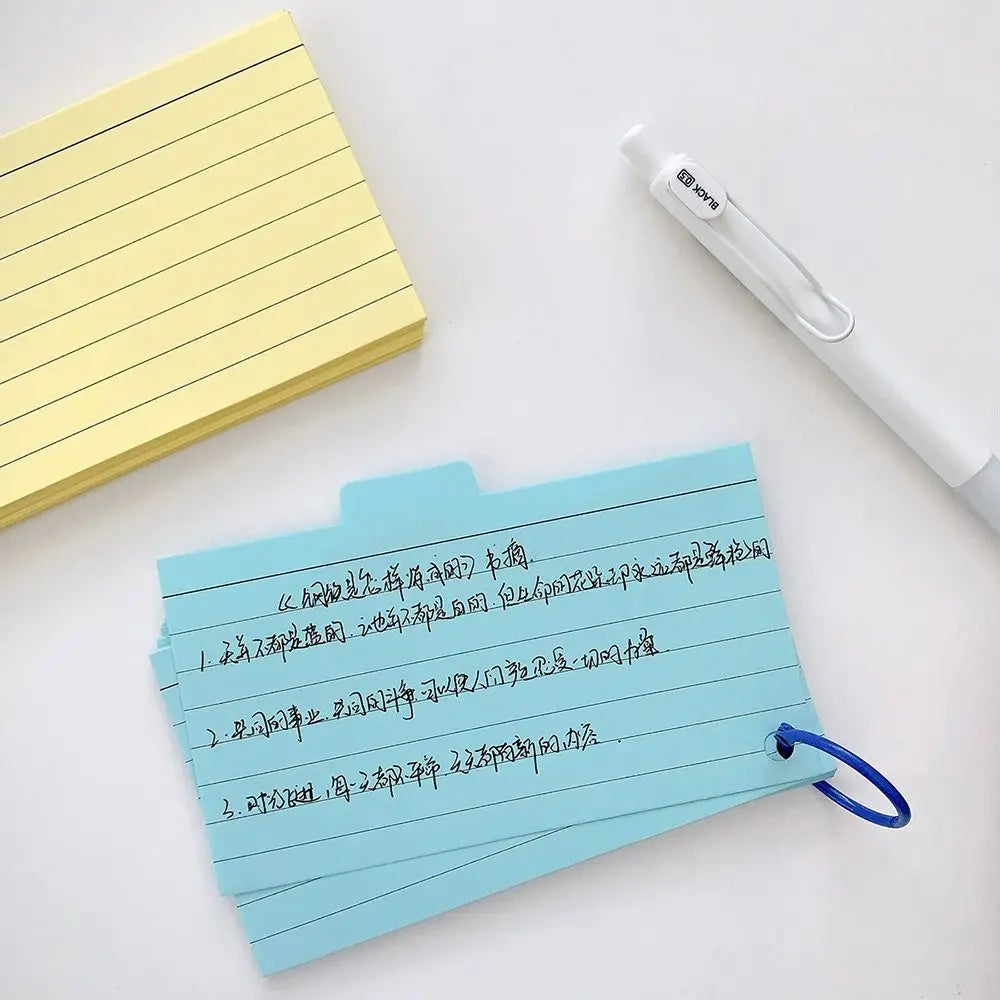 BLACK 0.5
《钢铁是怎样炼成的》书摘
1. 天并不都是蓝的，云也并不都是白的，但生命的花朵却永远都是鲜艳的
2. 共同的事业，共同的斗争，可以使人们产生忍受一切的力量
3. 时代在进，每一天都不平常，天天都有新的内容．